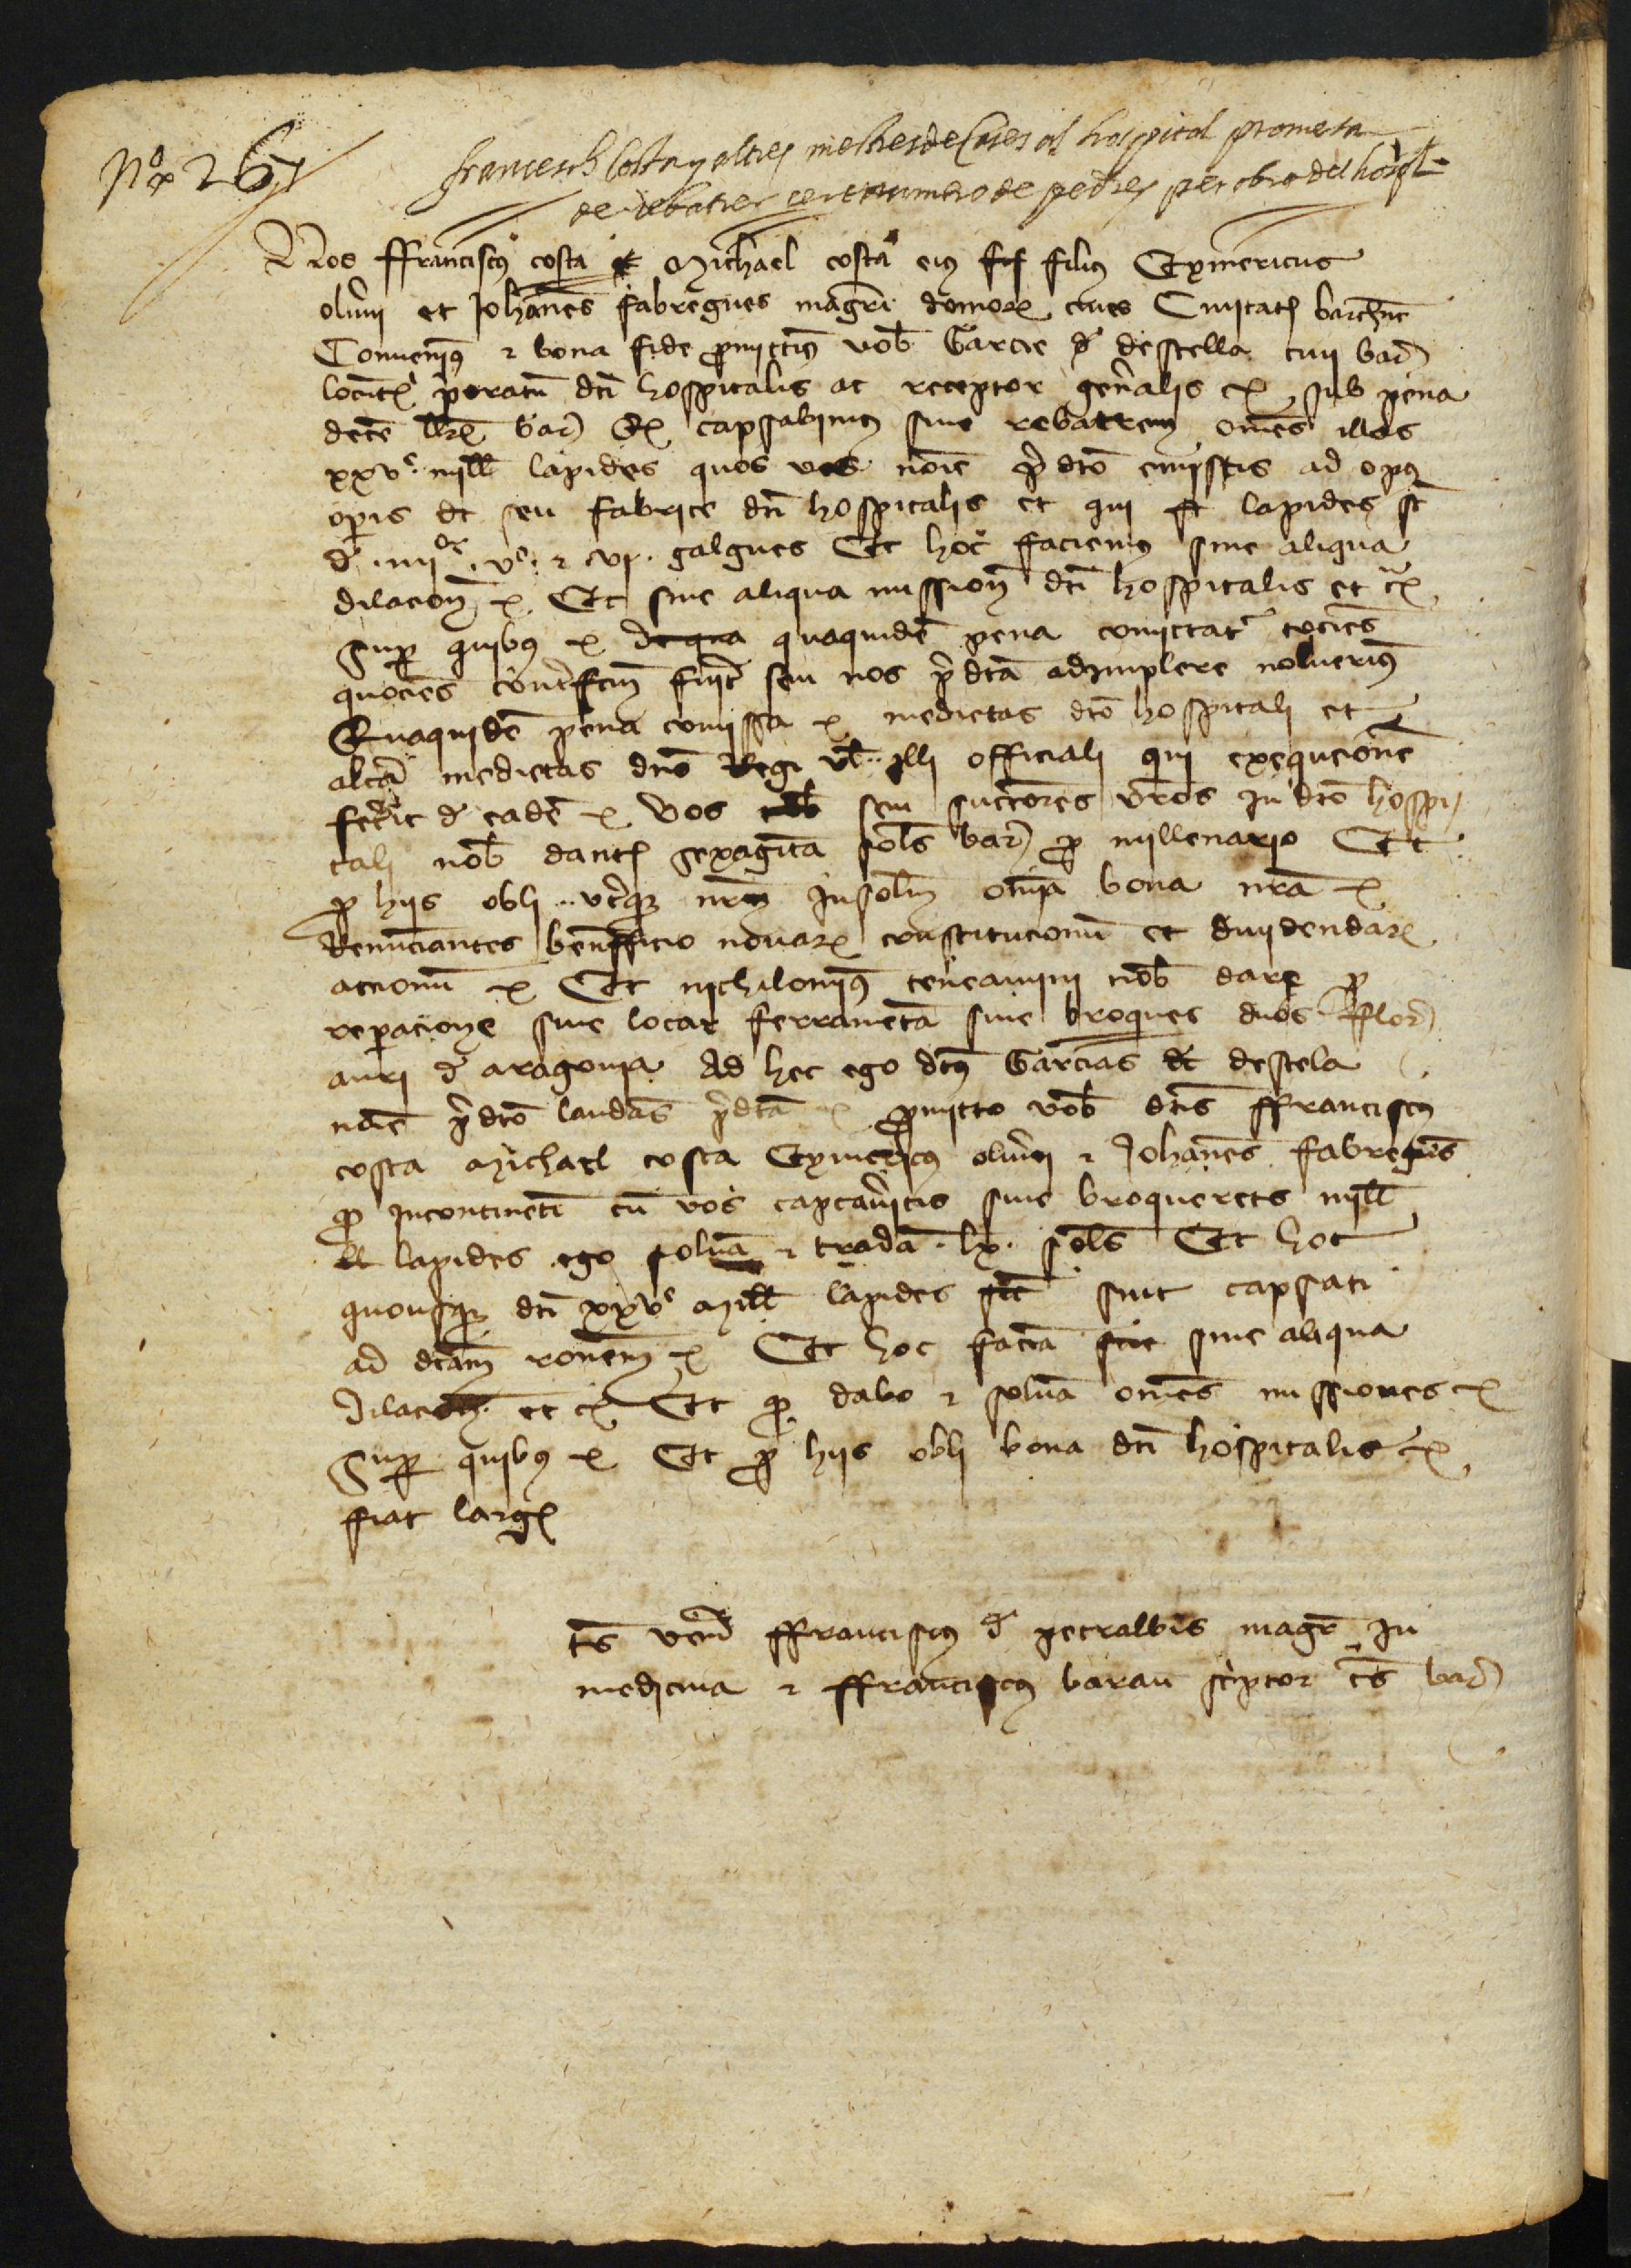 Nº 267
francesch Costa y altres mestres de cases al hospital prometen
de rebatrer cert numero de pedres per obra del hospl
Nos ffranciscus costa Michael costa eius filius Eymericus
oliuerii et Johannes fabregues magri domorum ciues Ciuitatis barchne
Conuenimus et bona fide promittimus vob Garcie de destella ciui bar
locutri dcti hospitalis ac receptor generalis etc sub pena
decem librarum bar Q capsabimus siue rebatrem omes illos
xxvᵉ mill lapides quos vos noie predto emistis ad opus
operis seu fabrice dti hospitalis et qui lapides st
de iiiiᵒʳ vᵉ et vj galgues Et hoc faciemus sine aliqua
dilacione etc Et sine aliqua missione dti hospitalis et etc
Super quibus etc de qua quaquidem pena comittatur tocies
quocies contrafcum fuerit seu nos predta adimplere noluerimus
Quaquidem pena comissa etc medietas dto hospitali et
altera medietas dno Regi vl illi officiali qui exequcione
fecerit de eadem etc vos seu successores vros in dto hospi
tali nob dantes sexaginta sols bar pro millenario Et
pro hiis obli uterque nrum insolm omnia bona nra etc
Renunciantes beneficio nouarum constitucionum et diuidendarum
accionum etc Et nichilominus teneamini nob dare pro
reparacione siue locar ferrametā siue broques duos flor
auri de aragonia Ad hec ego dtus Garcias de destela
noie predto laudans predta etc promitto vob dtis ffranciscus
costa Michael costa Eymericus oliuerii et Johanes fabregues
pro incontinenti cū vos capcaueritis siue broquerets mill
lapides ego soluā et tradā lx sols Et hoc
quousque dti xxvᵉ Mill lapides sint capsati
ad dtam ronem etc Et hoc faciā sine aliqua
Dilacione et etc Et dabo et soluā omes missiones etc
Super quibus etc Et pro hiis obli bona dti hospitalis etc
fiat large
ts vened ffranciscus de petralbis magr in
medicina et ffranciscus barau scriptor ts bar